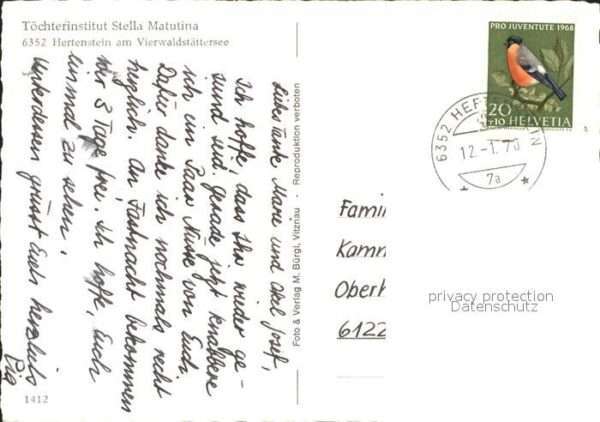 Töchterinstitut Stella Matutina
6352 Hertenstein am Vierwaldstättersee
Liebe Tante Marie und Onkel Josef,
Ich hoffe, dass Ihr wieder ge-
sund seid. Gerade jetzt knabbere
ich ein Paar Nüsse von Euch.
Dafür danke ich nochmals recht
herzlich. An Fastnacht bekommen
wir 3 Tage frei. Ich hoffe, Euch
einmal zu sehen!
Unterdessen grüsst Euch herzlichst
Pia
1412
Foto & Verlag M. Bürgi, Vitznau - Reproduktion verboten
PRO JUVENTUTE 1968
20
+10 HELVETIA
6352 HERTENSTEIN
12.-1.70
7a
Famil
Kamm
Oberh
6122
privacy protection
Datenschutz